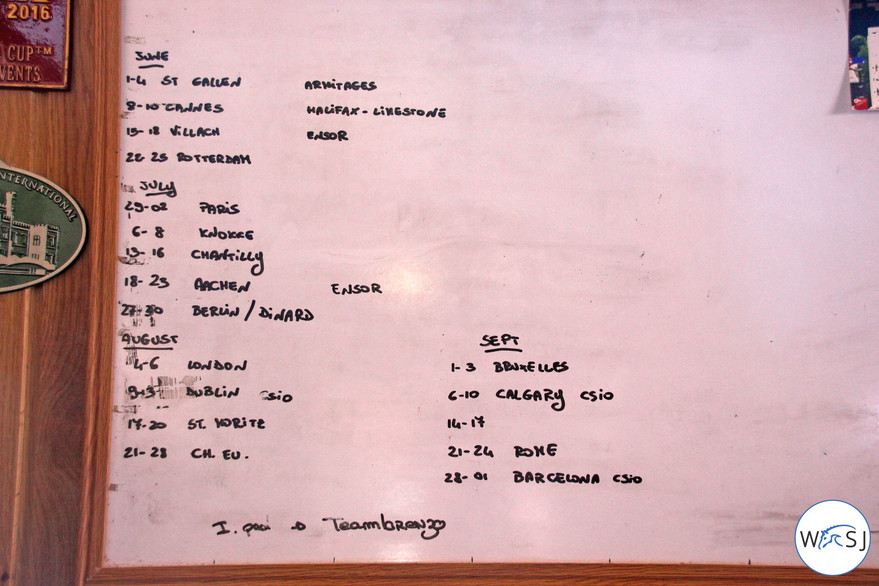 2016
CUP™
EVENTS
INTERNATIONAL
JUNE
1-4 ST GALLEN ARMITAGES
8-10 CANNES HALIFAX - LIMESTONE
15-18 VILLACH ENSOR
22-25 ROTTERDAM
JULY
29-02 PARIS
6-8 KNOKKE
13-16 CHANTILLY
18-23 AACHEN ENSOR
27-30 BERLIN / DINARD
AUGUST
4-6 LONDON
DUBLIN CSIO
17-20 ST. MORITZ
21-28 CH. EU.
SEPT
1-3 BRUXELLES
6-10 CALGARY CSIO
14-17
21-24 ROME
28-01 BARCELONA CSIO
I.
WSJ